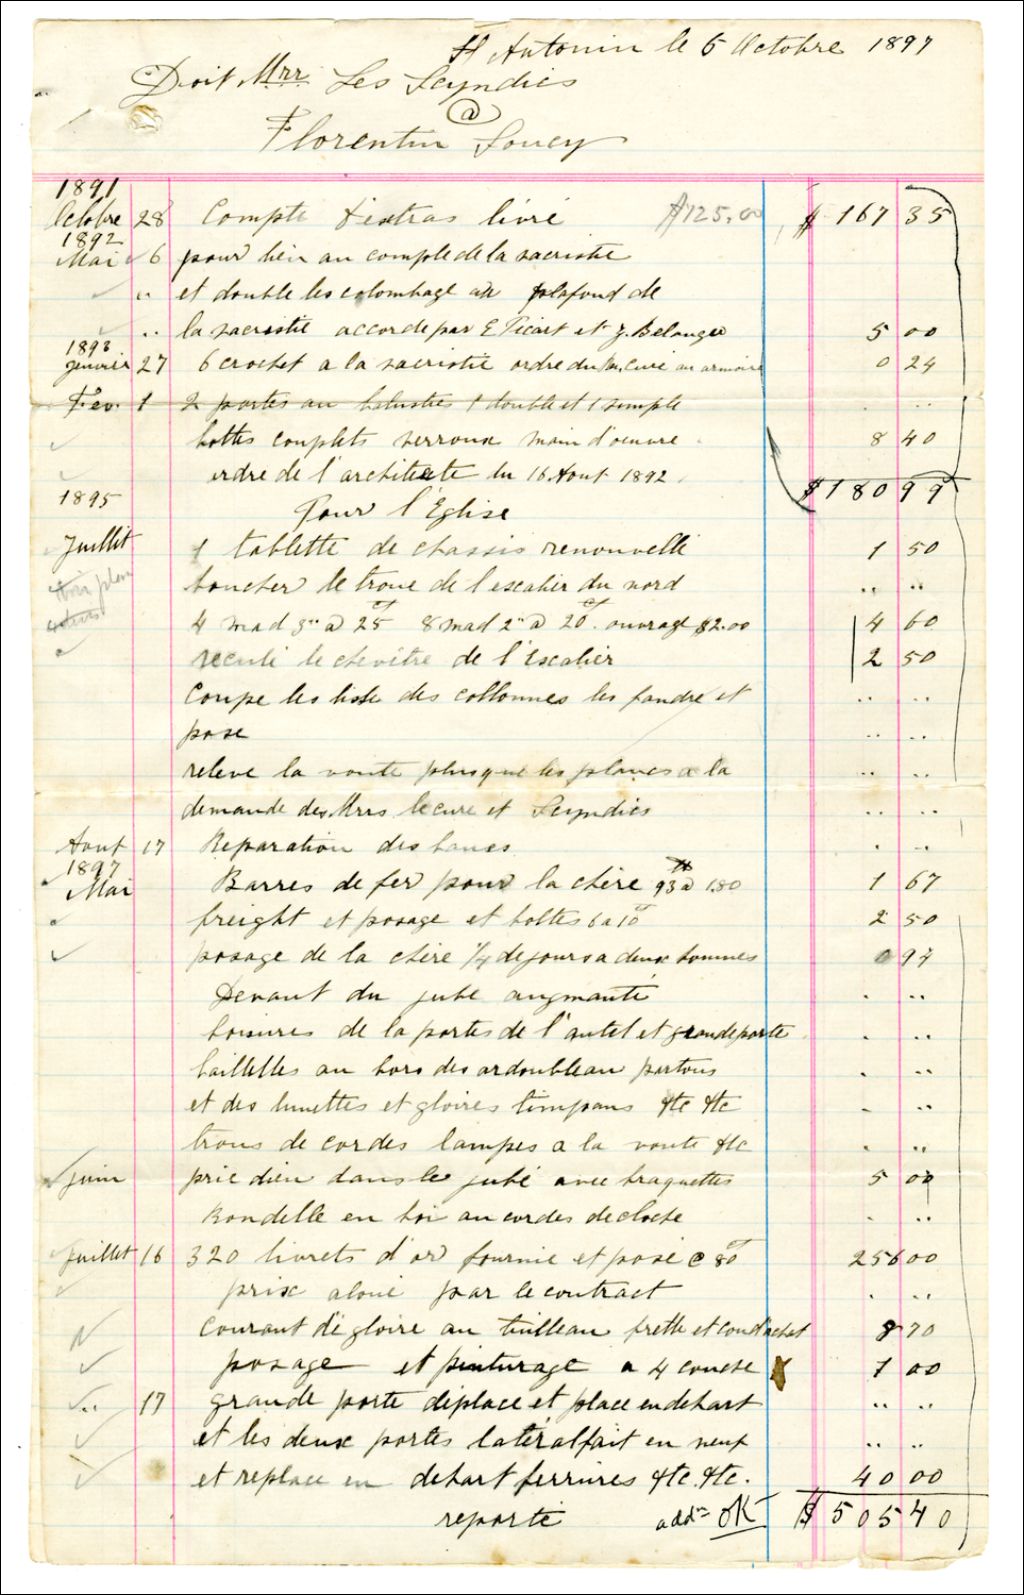 St Antonin le 6 Octobre 1897
Doit Mrr Les Scyndics
@
Florentin Soucy
1891
Octobre 28 Compte d'extras livré $125.00 $ 167 35
1892
Mai 6 pour lien au comple de la sacristie
" et double les colombage au plafond de
" la sacristie accorde par E Picart et J. Belanger 5 00
1893
Janvier 27 6 crochet a la sacristie ordre du Mr Curé au armoire 0 24
Fev. 1 2 portes au balustres 1 double et 1 simple .. ..
bolttes couplets verroux main d'oeuvre 8 40
ordre de l'architecte du 16 Aout 1892 $180 99
1895
Pour l'Eglise
Juillet 1 tablette de chassis renouvelle 1 50
boucher le troue de l'escalier du nord .. ..
4 mad 3" @ 25 ct 8 mad 2" @ 20 ct. ouvrage $2.00 4 60
recule le chevître de l'Escalier 2 50
Coupe les liste des collonnes les fandre et .. ..
pose .. ..
releve la voute plusque les planes a la .. ..
demande des Mrrs le cure et Scyndics .. ..
Aout 17 Reparation des bancs . ..
1897
Mai Barres de fer pour la chère 93 @ 1.80 1 67
freight et posage et boltes 6 a 10 ct 2 50
posage de la chère 1/4 de jours a deux hommes 0 94
Devant du jubé augmanté . ..
boisures de la portes de l'autel et grande porte . ..
baillettes au bors des ardoubleau partous . ..
et des lunettes et gloires timpans &tc &tc . ..
trous de cordes lampes a la voute &tc . ..
juin prie dieu dans le jubé avec braquettes 5 00
Rondelle en boi au cordes de cloche . ..
Juillet 16 320 livrets d'or fournie et posé @ 80 ct 256 00
prix aloué par le contract . ..
Courant de gloire au tuilleau frette et coud'achat 8 70
posage et pinturage a 4 couche 1 00
" 17 grande porte déplace et place en dehart .. ..
et les deux portes latéral fait en neuf .. ..
et replace en dehart ferrures &tc. &tc. 40 00
reporté addn OK $ 505 40